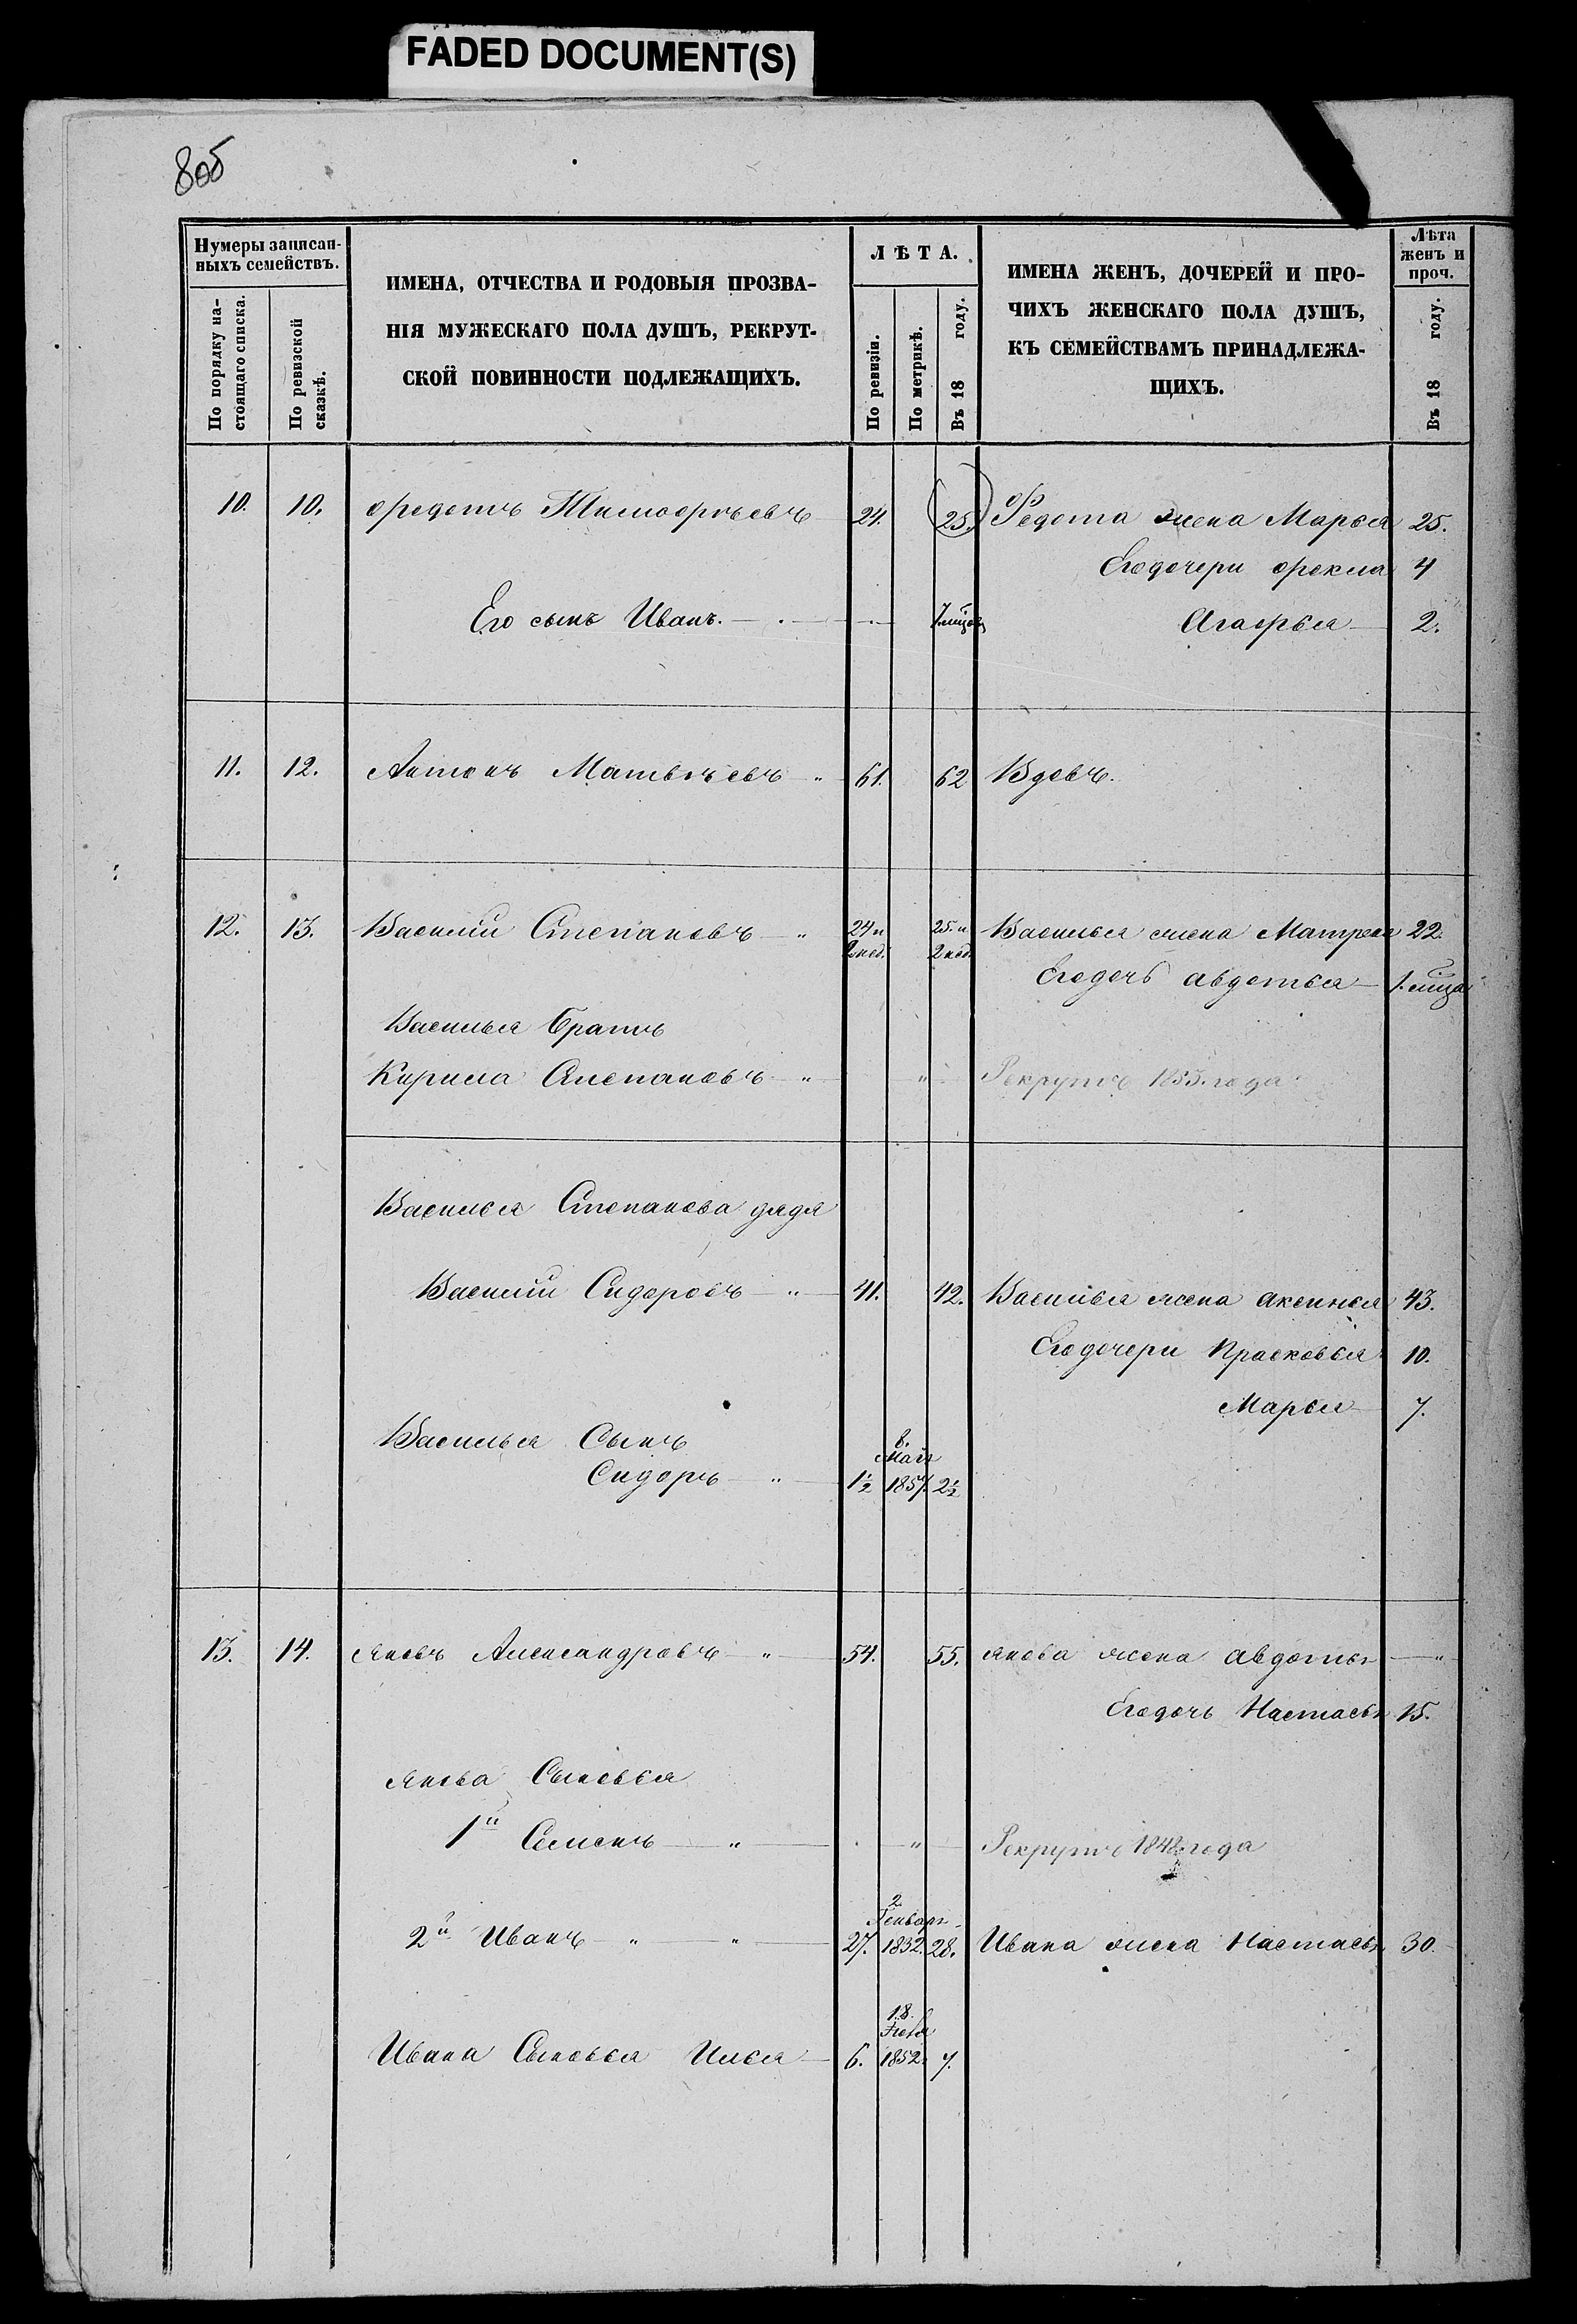 FADED DOCUMENT(S)
8об
Нумеры записан-
ныхъ семействъ.
По порядку на-
стоящаго списка.
По ревизской
сказкѣ.
ИМЕНА, ОТЧЕСТВА И РОДОВЫЯ ПРОЗВА-
НІЯ МУЖЕСКАГО ПОЛА ДУШЪ, РЕКРУТ-
СКОЙ ПОВИННОСТИ ПОДЛЕЖАЩИХЪ.
ЛѢТА.
По ревизіи.
По метрикѣ.
Въ 18 году.
ИМЕНА ЖЕНЪ, ДОЧЕРЕЙ И ПРО-
ЧИХЪ ЖЕНСКАГО ПОЛА ДУШЪ,
КЪ СЕМЕЙСТВАМЪ ПРИНАДЛЕЖА-
ЩИХЪ.
Лѣта
женъ и
проч.
Въ 18 году.
10. 10. Федотъ Тимофѣевъ 24. 25. Федота жена Марья 25.
Его дочери Фекла 4
Его сынъ Иванъ. Агафья 2.
11. 12. Антонъ Матвѣевъ 61. 62 Вдовъ.
12. 13. Василій Степановъ 24 и 25. и Василья жена Матрена 22.
2 нед. 2 нед.
Его дочь Авдотья
Василья братъ
Кирила Степановъ Рекрутъ 1855. года
Василья Степанова дядя
Василій Сидоровъ 41. 42. Василья жена Аксинья 43.
Его дочери Прасковья 10.
Марья 7.
Василья Сынъ 8.
Мая
Сидоръ 1½ 1857. 2½
13. 14. Яковъ Александровъ 54. 55. Якова жена Авдотья
Его дочь Настасья 15.
Якова Сыновья
1й Семенъ Рекрутъ 1848 года
2.
Генваря
2й Иванъ 27. 1832. 28. Ивана жена Настасья 30.
18.
Ивана Сыновья Илья 6. 1852. 7.